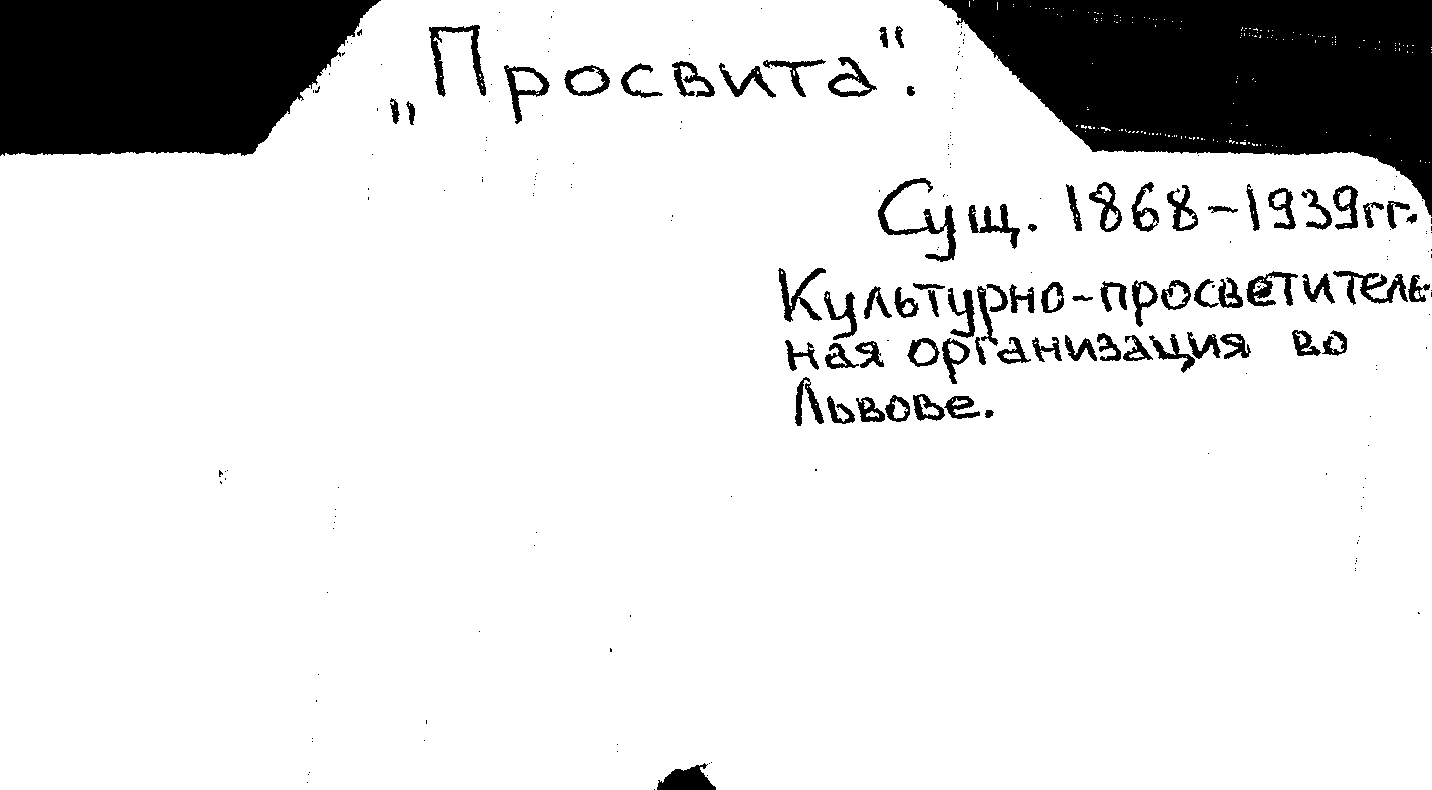 „Просвита".
Сущ. 1868-1939гг.
Культурно-просветитель-
ная организация во
Львове.